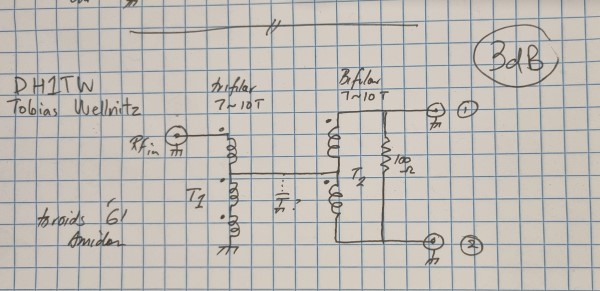 3dB
DH1TW
Tobias Wellnitz
trifilar
7~10T
Bifilar
7~10T
RFin
T1
T2
100
Ω
?
1
2
toroids 61
Amidon